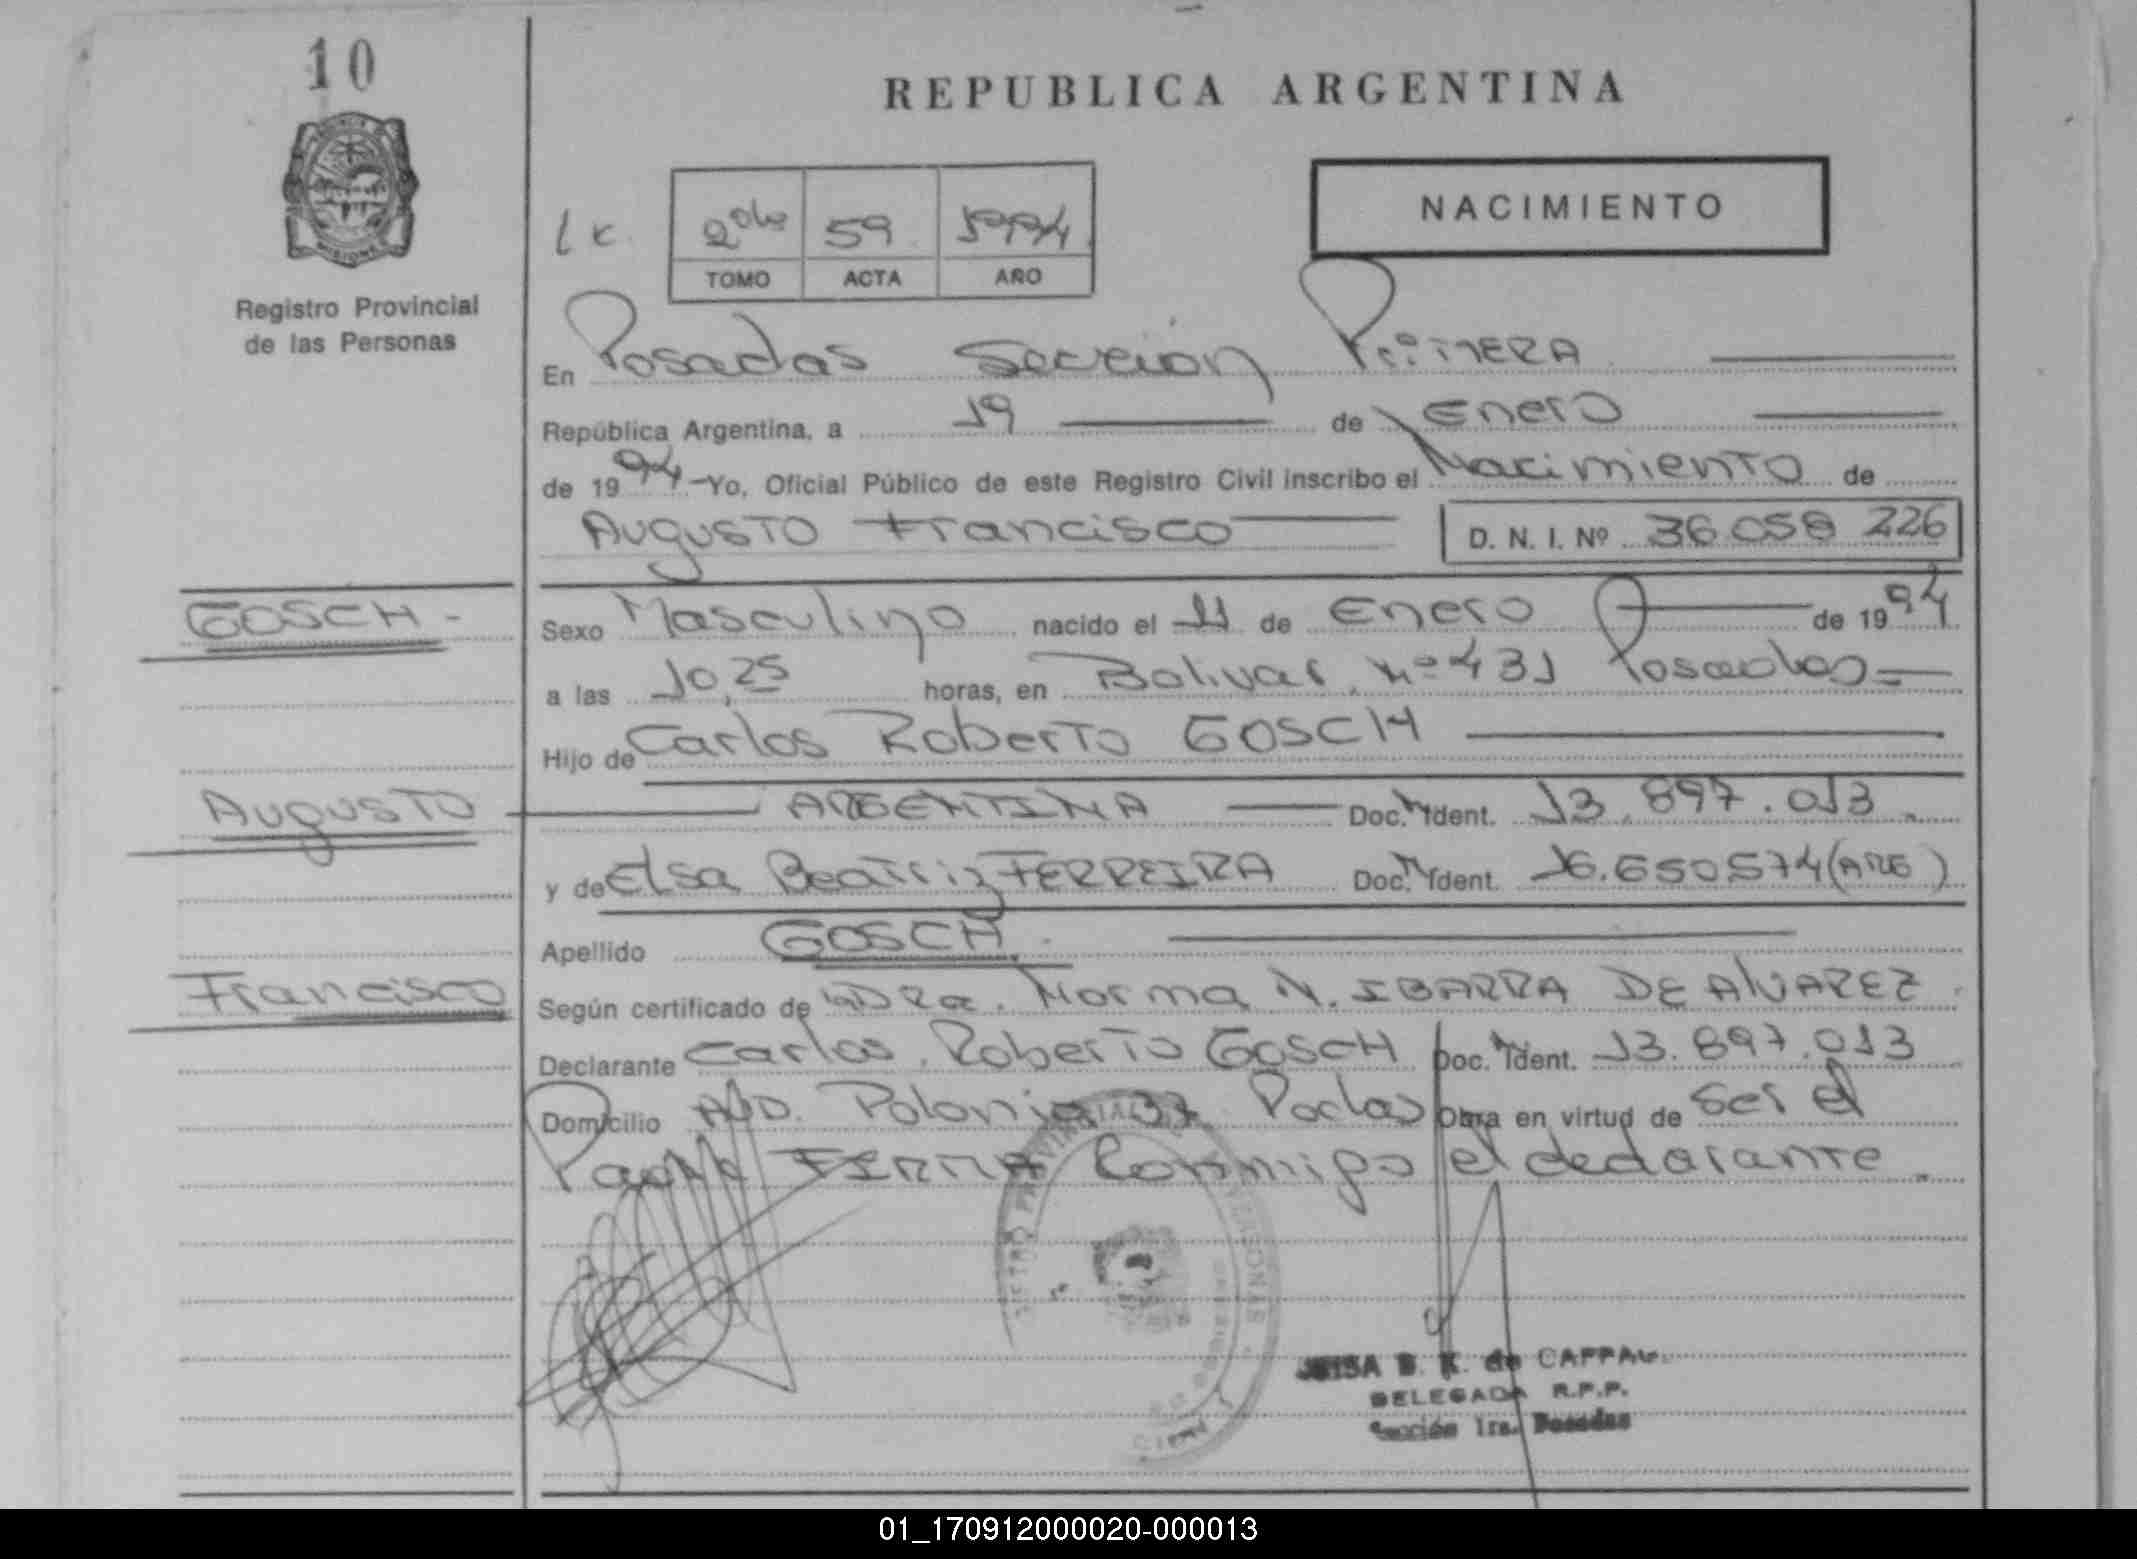 10
REPUBLICA ARGENTINA
NACIMIENTO
2do 59 1994
TOMO ACTA AÑO
Registro Provincial
de las Personas
En Posadas Sección Primera
República Argentina, a 19 de Enero
de 1994 -Yo, Oficial Público de este Registro Civil inscribo el Nacimiento de
Augusto Francisco D. N. I. Nº 36.058 226
GOSCH -
Sexo Masculino nacido el 11 de Enero de 1994
a las 10,25 horas, en Bolivar nº 431 Posadas
Hijo de Carlos Roberto GOSCH
Augusto
ARGENTINA Doc. Ident. 13.897.013
y de Elsa Beatriz FERREIRA Doc. Ident. 16.650574 (ARG)
Apellido GOSCH.
Francisco
Según certificado de la Dra. Norma N. IBARRA DE ALVAREZ
Declarante Carlos Roberto GOSCH Doc. Ident. 13.897.013
Domicilio AVD. Polonia 37 Pdas Obra en virtud de Ser el
Padre FIRMA Conmigo el declarante.
B. K. de
DELEGADA R.P.P.
Sección 1ra. Posadas
01_170912000020-000013